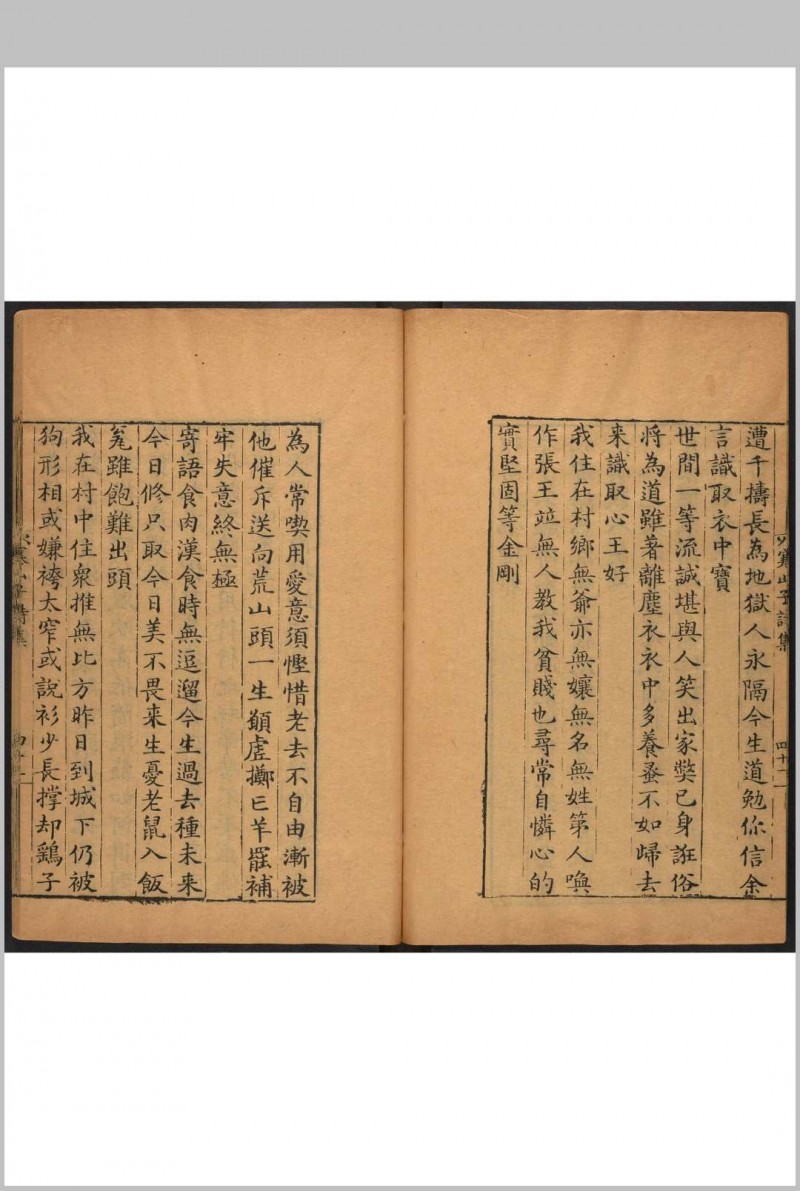 遭千擣長為地獄人永隔今生道勉你信余
言識取衣中寶
世間一等流誠堪與人笑出家獘已身誑俗
将為道雖著離塵衣衣中多養蚤不如歸去
来識取心王好
我住在村鄉無爺亦無孃無名無姓第人喚
作張王竝無人教我貧賤也尋常自憐心的
實堅固等金剛
寒山子詩集
為人常喫用愛意須慳惜老去不自由漸被
他催斥送向荒山頭一生願虛擲亡羊罷補
牢失意終無極
寄語食肉漢食時無逗遛今生過去種未来
今日修只取今日美不畏来生憂老鼠入飯
瓮雖飽難出頭
我在村中住衆推無比方昨日到城下仍被
狗形相或嫌袴太窄或說衫少長撑却鷂子
寒山子詩集